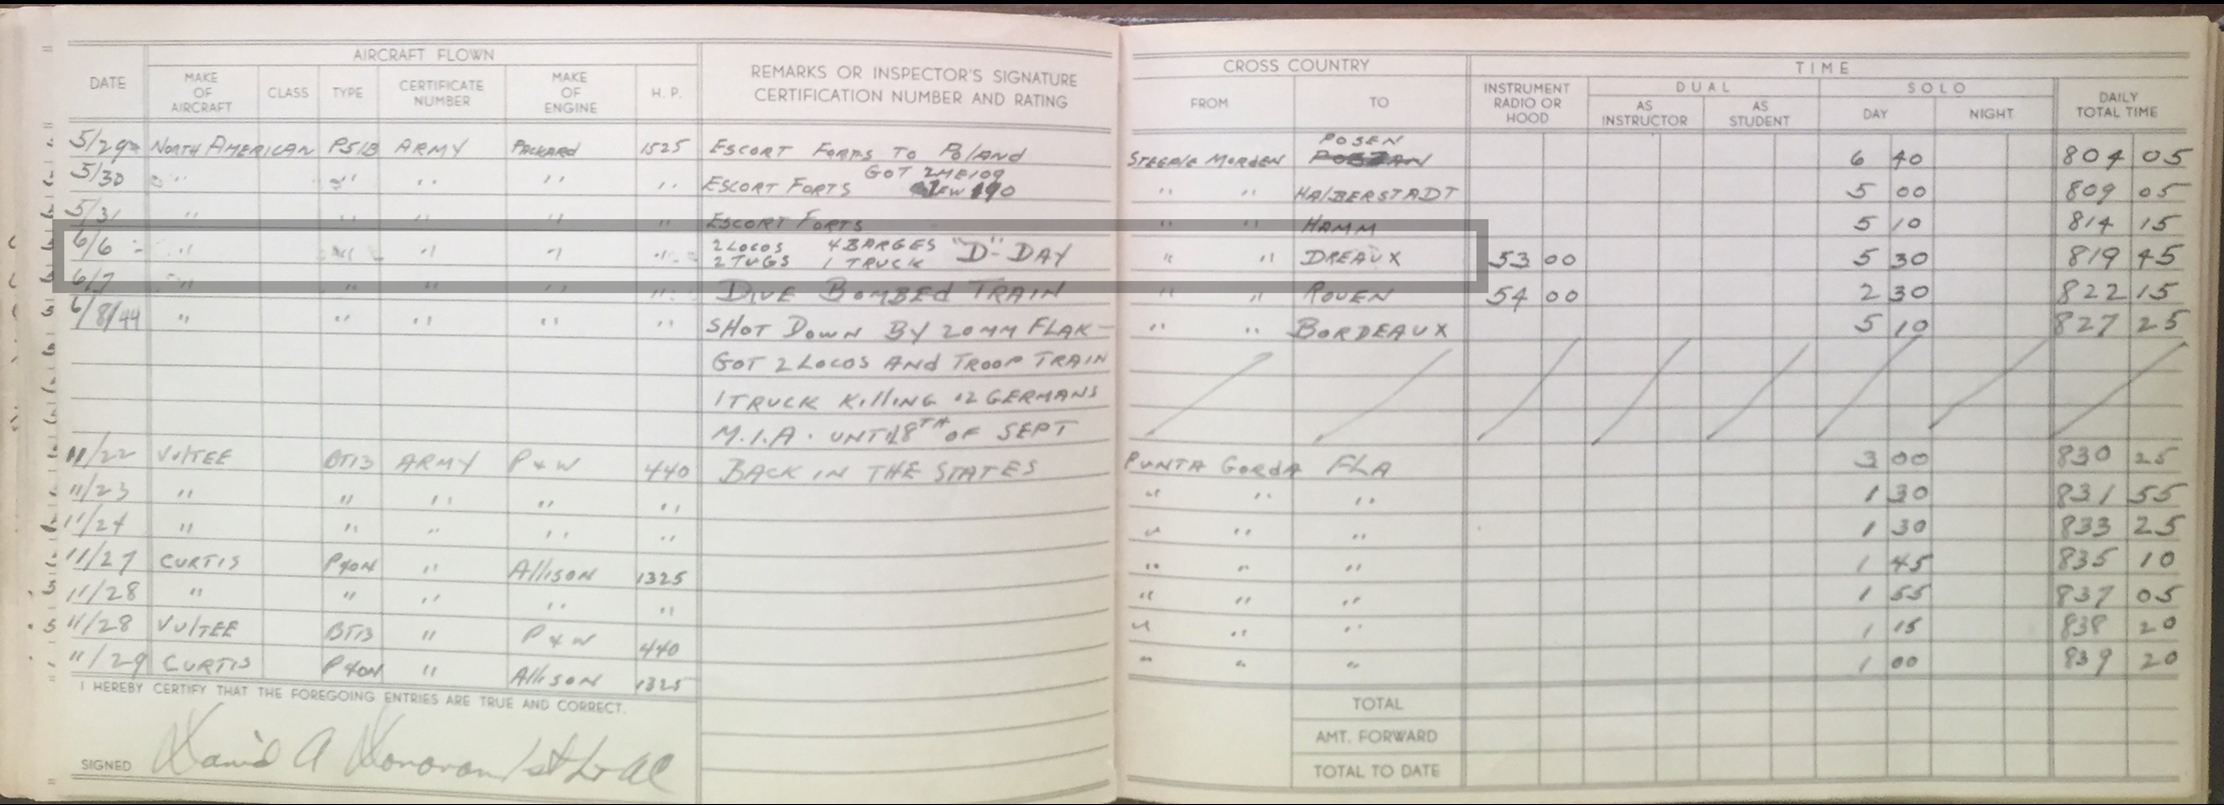 AIRCRAFT FLOWN CROSS COUNTRY TIME
DATE MAKE OF AIRCRAFT CLASS TYPE CERTIFICATE NUMBER MAKE OF ENGINE H. P. REMARKS OR INSPECTOR'S SIGNATURE CERTIFICATION NUMBER AND RATING FROM TO INSTRUMENT RADIO OR HOOD DUAL AS INSTRUCTOR AS STUDENT SOLO DAY NIGHT DAILY TOTAL TIME
5/29 NORTH AMERICAN P51B ARMY PACKARD 1525 ESCORT FORTS TO POLAND STEEPLE MORDEN POSEN 6 40 804 05
5/30 " " " " " ESCORT FORTS GOT 2 ME109 1 FW 190 " " HALBERSTADT 5 00 809 05
5/31 " " " " " ESCORT FORTS " " HAMM 5 10 814 15
6/6 " " " " " 2 LOCOS 4 BARGES 2 TUGS 1 TRUCK "D"-DAY " " DREAUX 53 00 5 30 819 45
6/7 " " " " " DIVE BOMBED TRAIN " " ROUEN 54 00 2 30 822 15
6/8/44 " " " " " SHOT DOWN BY 20MM FLAK- " " BORDEAUX 5 10 827 25
GOT 2 LOCOS AND TROOP TRAIN
1 TRUCK KILLING 12 GERMANS
M.I.A. UNTIL 8TH OF SEPT
11/22 VULTEE BT13 ARMY P & W 440 BACK IN THE STATES PUNTA GORDA FLA 3 00 830 25
11/23 " " " " " " " " 1 30 831 55
11/24 " " " " " " " " 1 30 833 25
11/27 CURTIS P40N " ALLISON 1325 " " " 1 45 835 10
11/28 " " " " " " " " 1 55 837 05
11/28 VULTEE BT13 " P & W 440 " " " 1 15 838 20
11/29 CURTIS P40N " ALLISON 1325 " " " 1 00 839 20
I HEREBY CERTIFY THAT THE FOREGOING ENTRIES ARE TRUE AND CORRECT.
SIGNED David A Donovan 1st Lt AC
TOTAL
AMT. FORWARD
TOTAL TO DATE